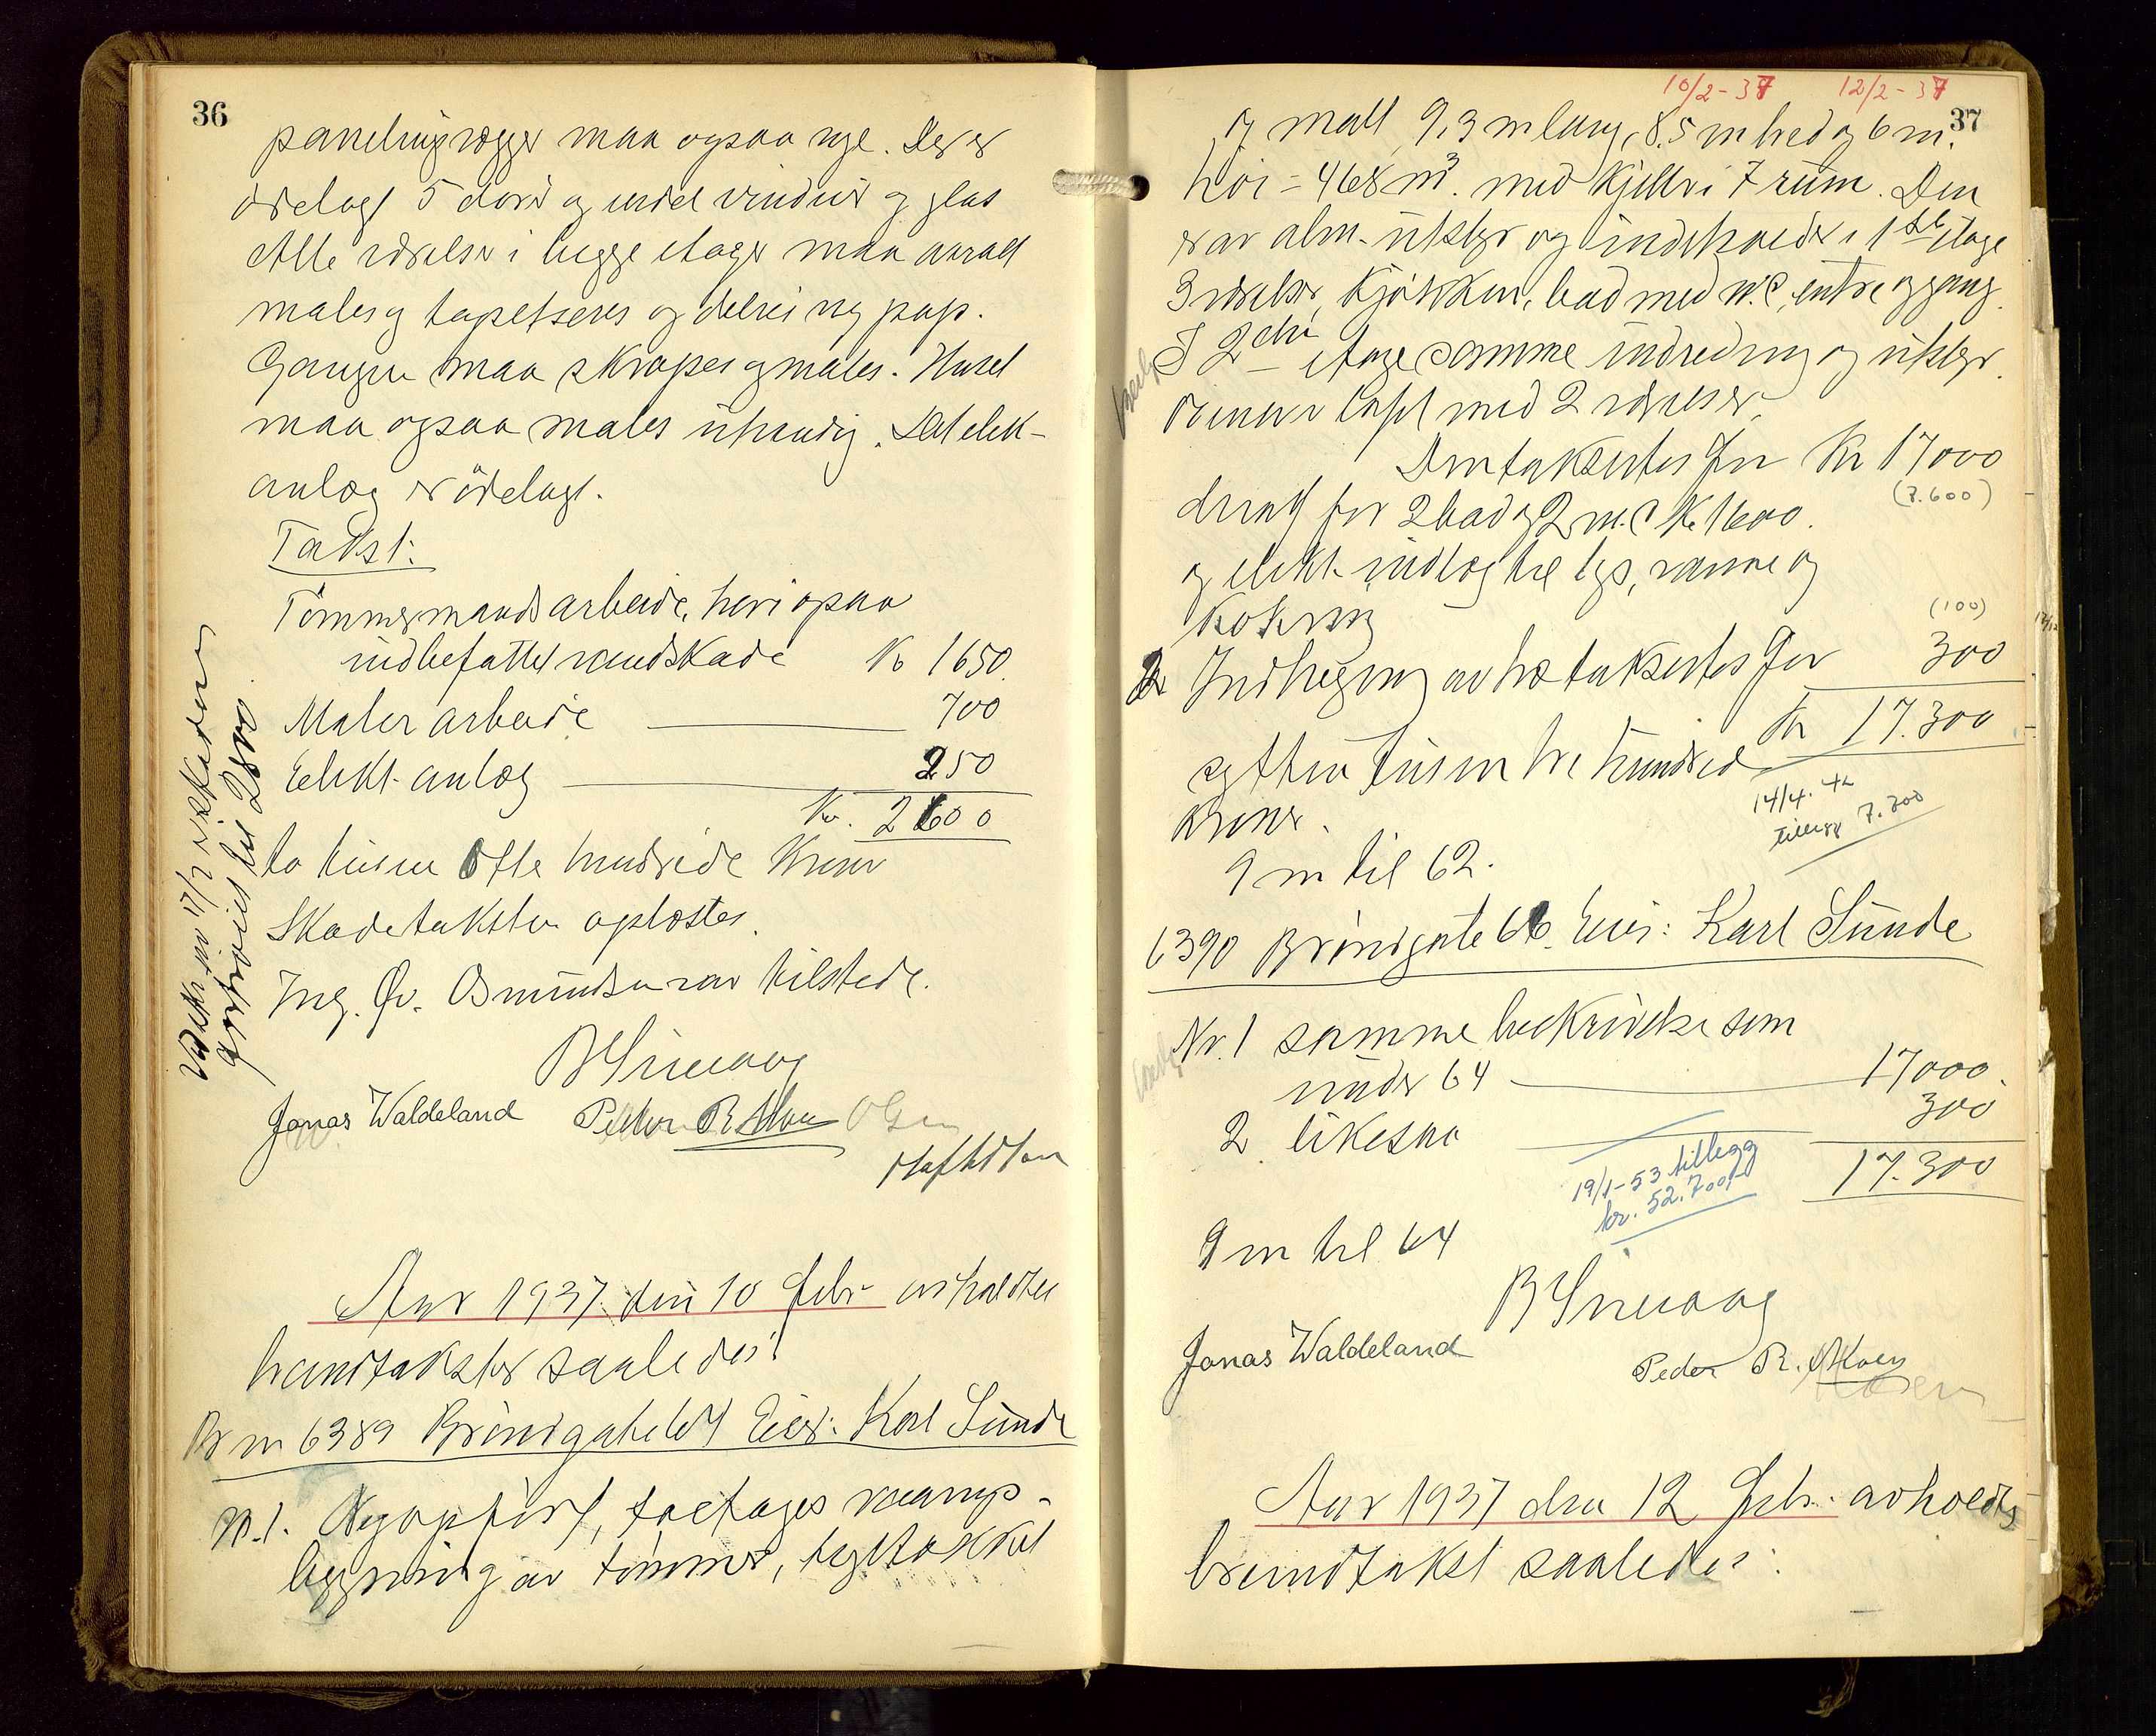 36
panelingvegger maa ogsaa nye. Der er
ødelagt 5 dører og endel vinduer og glas
Alle værelser i begge etager maa overalt
males og tapetseres og delvis ny pap.
Gangen maa skrapes og males. Huset
maa ogsaa males utvendig. Det elek-
anlæg er ödelagt.
Takst:
Tömmermandsarbeide, heri ogsaa
indbefattet vandskade Kr 1650.
Malerarbeide 700
Elekt. anlæg 250
Kr. 2600
to tusen otte hundrede Kroner
Skadetaksten oplæstes.
Ing. Qv. Osmundsen var tilstede.
B Simonng
Jonas Waldeland Peder R. Moen Olsen
17/2 er skaden
til 2800.
Aar 1937 den 10 Febr. avholdtes
brandtakster saaledes:
Br nr 6389 Bröndgate 64 Eier: Karl Sunde
Nr. 1. Nyopført, toetages vaanings-
bygning av tömmer, tegltækket
10/2-37 12/2-37
37
og malt 9,3 m lang, 8.5 m bred og 6 m.
høi = 468 m³. med Kjeller i 7 rum. Den
er av alm. utstyr og indeholder i 1ste etage
3 værelser, Kjökken, bad med w.c, entre og gang.
I 2den etage samme indredning og utstyr.
loft med 2 værelser.
Den taksertes for Kr 17000
(7.600)
derav for 2 bad og 2 w.c Kr. 1600.
og elekt. indlæg til lys, varme og
Kokning
(100)
2. Indhegning av træ taksertes for 300
Kr 17.300
sytten tusen tre hundred
Kroner.
14/4. 42
tillegg 7.700
9 m til 62.
6390 Bröndgate 66. Eier: Karl Sunde
Nr. 1 samme beskrivelse som
under 64 17000.
2. likesaa 300
17.300
19/1-53 tillegg
kr. 52.700,-
9 m til 64
B Simonng
Jonas Waldeland Peder R. Moen
Aar 1937 den 12 Febr. avholdtes
brandtakst saaledes: